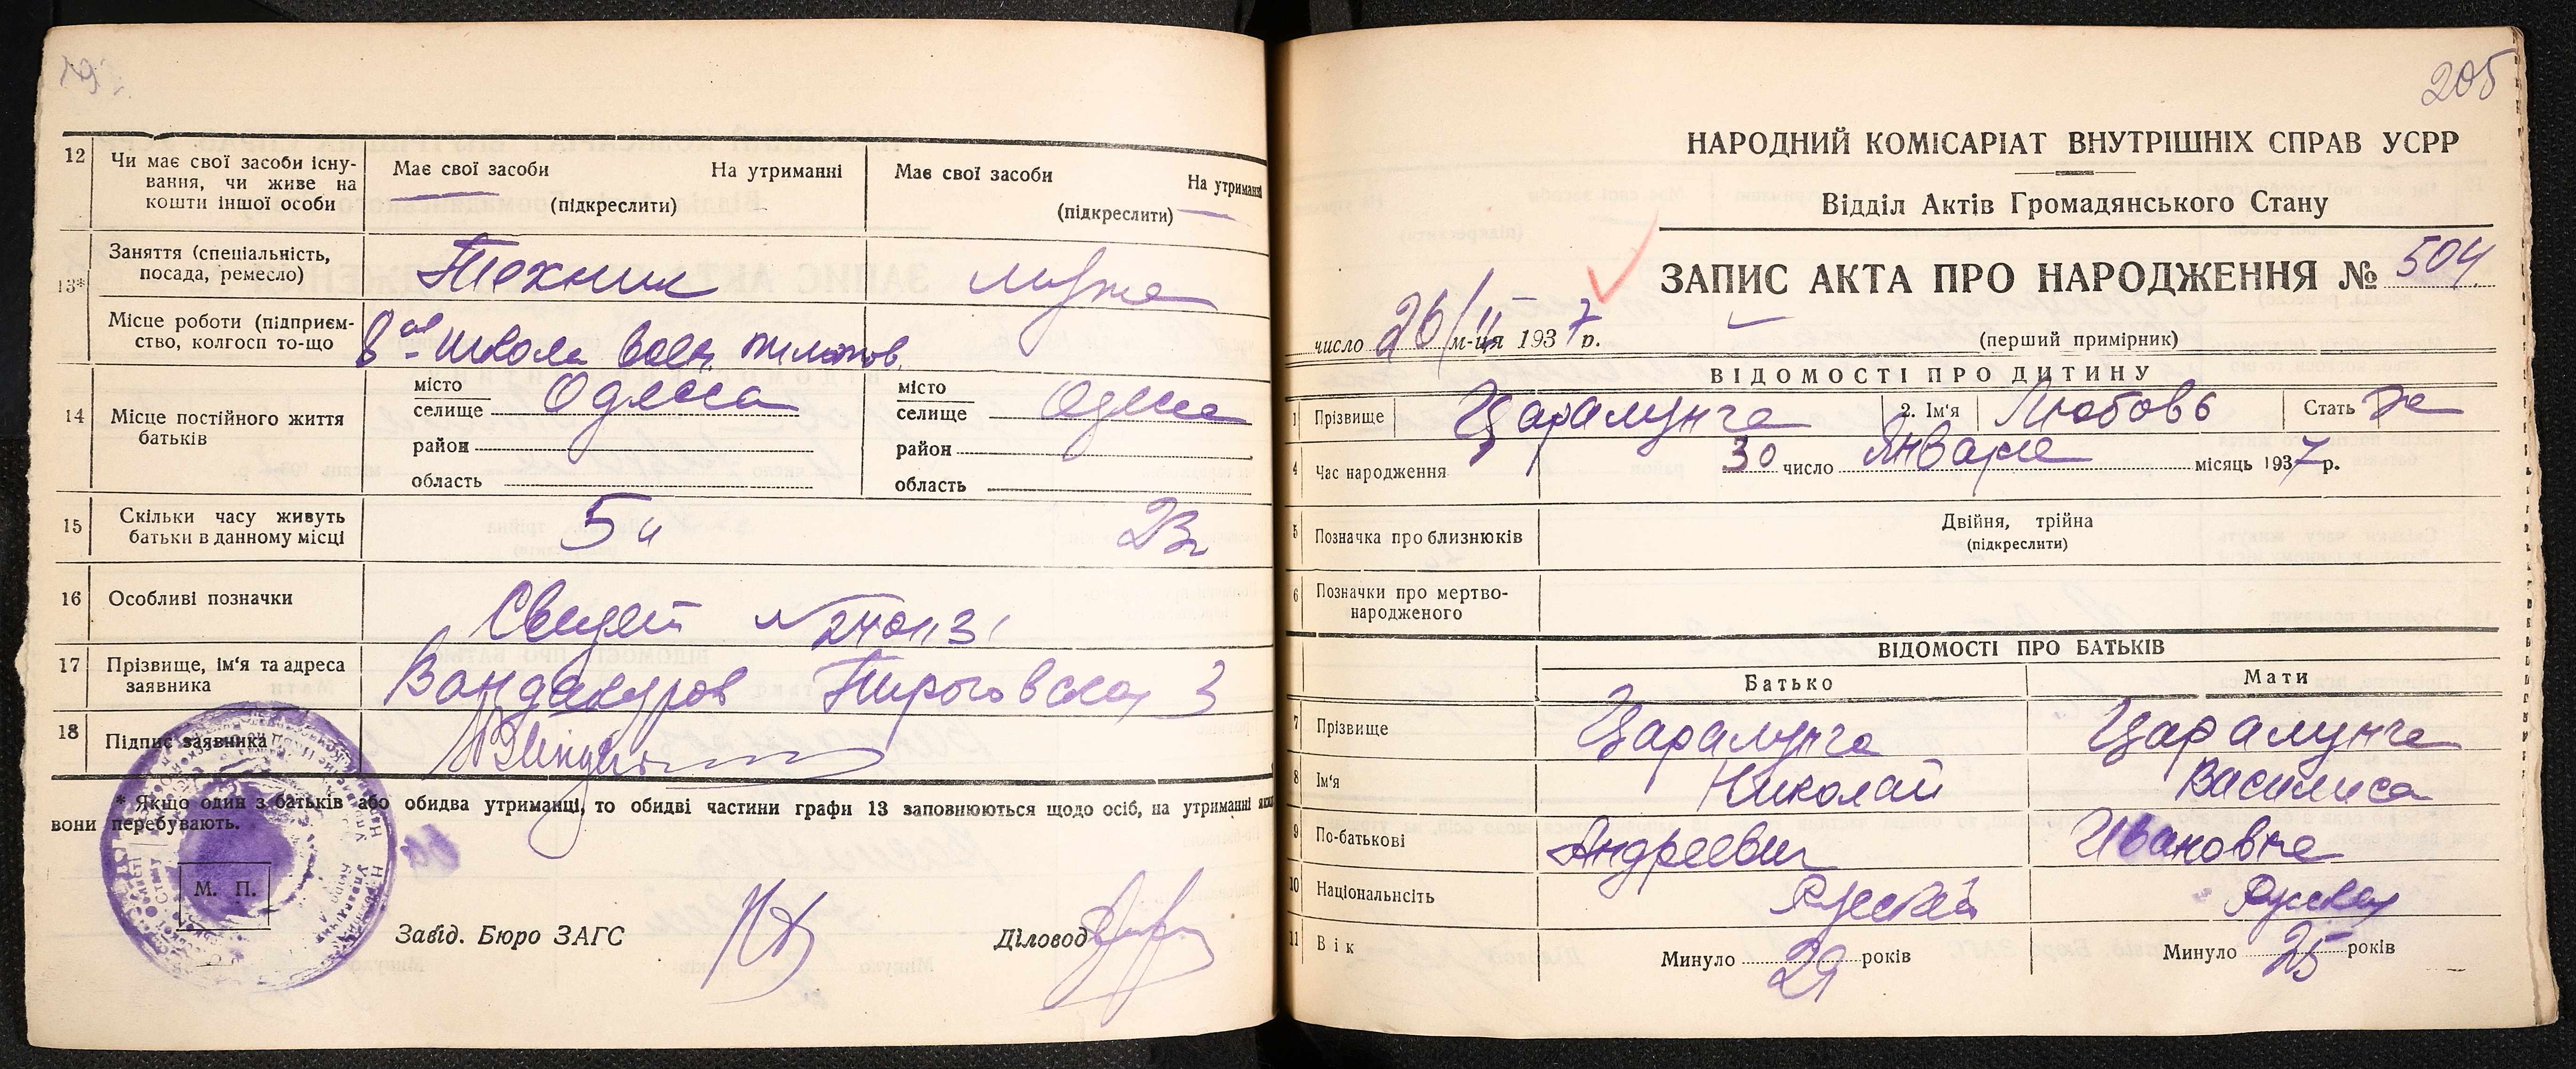 12 Чи має свої засоби існу-
вання, чи живе на
кошти іншої особи
Має свої засоби На утриманні
(підкреслити)
Має свої засоби На утриманні
(підкреслити)
13*
Заняття (спеціальність,
посада, ремесло)
Техник
мужа
Місце роботи (підприєм-
ство, колгосп то-що
8ая школа воен. пилотов.
14 Місце постійного життя
батьків
місто
селище Одесса
район
область
місто
селище Одесса
район
область
15 Скільки часу живуть
батьки в данному місці
5
16 Особливі позначки
Свидет №
17 Прізвище, ім'я та адреса
заявника
Пироговская 3
18 Підпис заявника
* Якщо один з батьків або обидва утриманці, то обидві частини графи 13 заповнюються щодо осіб, на утриманні яких
вони перебувають.
М. П.
Завід. Бюро ЗАГС
Діловод
205
НАРОДНИЙ КОМІСАРІАТ ВНУТРІШНІХ СПРАВ УСРР
Відділ Актів Громадянського Стану
ЗАПИС АКТА ПРО НАРОДЖЕННЯ № 504.
число 26/II м-ця 1937 р.
(перший примірник)
ВІДОМОСТІ ПРО ДИТИНУ
1 Прізвище Царалунга 2. Ім'я Любовь Стать Же
4 Час народження 30 число Января місяць 1937 р.
5 Позначка про близнюків
Двійня, трійна
(підкреслити)
6 Позначки про мертво-
народженого
ВІДОМОСТІ ПРО БАТЬКІВ
Батько Мати
7 Прізвище Царалунга Царалунга
8 Ім'я Николай Василиса
9 По-батькові Андреевич Ивановна
10 Національність Русский Русская
11 Вік Минуло 29 років Минуло 25 років